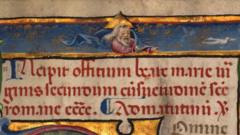 Incipit officium bẽate marie vir
ginis secundum cũsuetudinem
romane eccle. Ad matutinũ
Domine